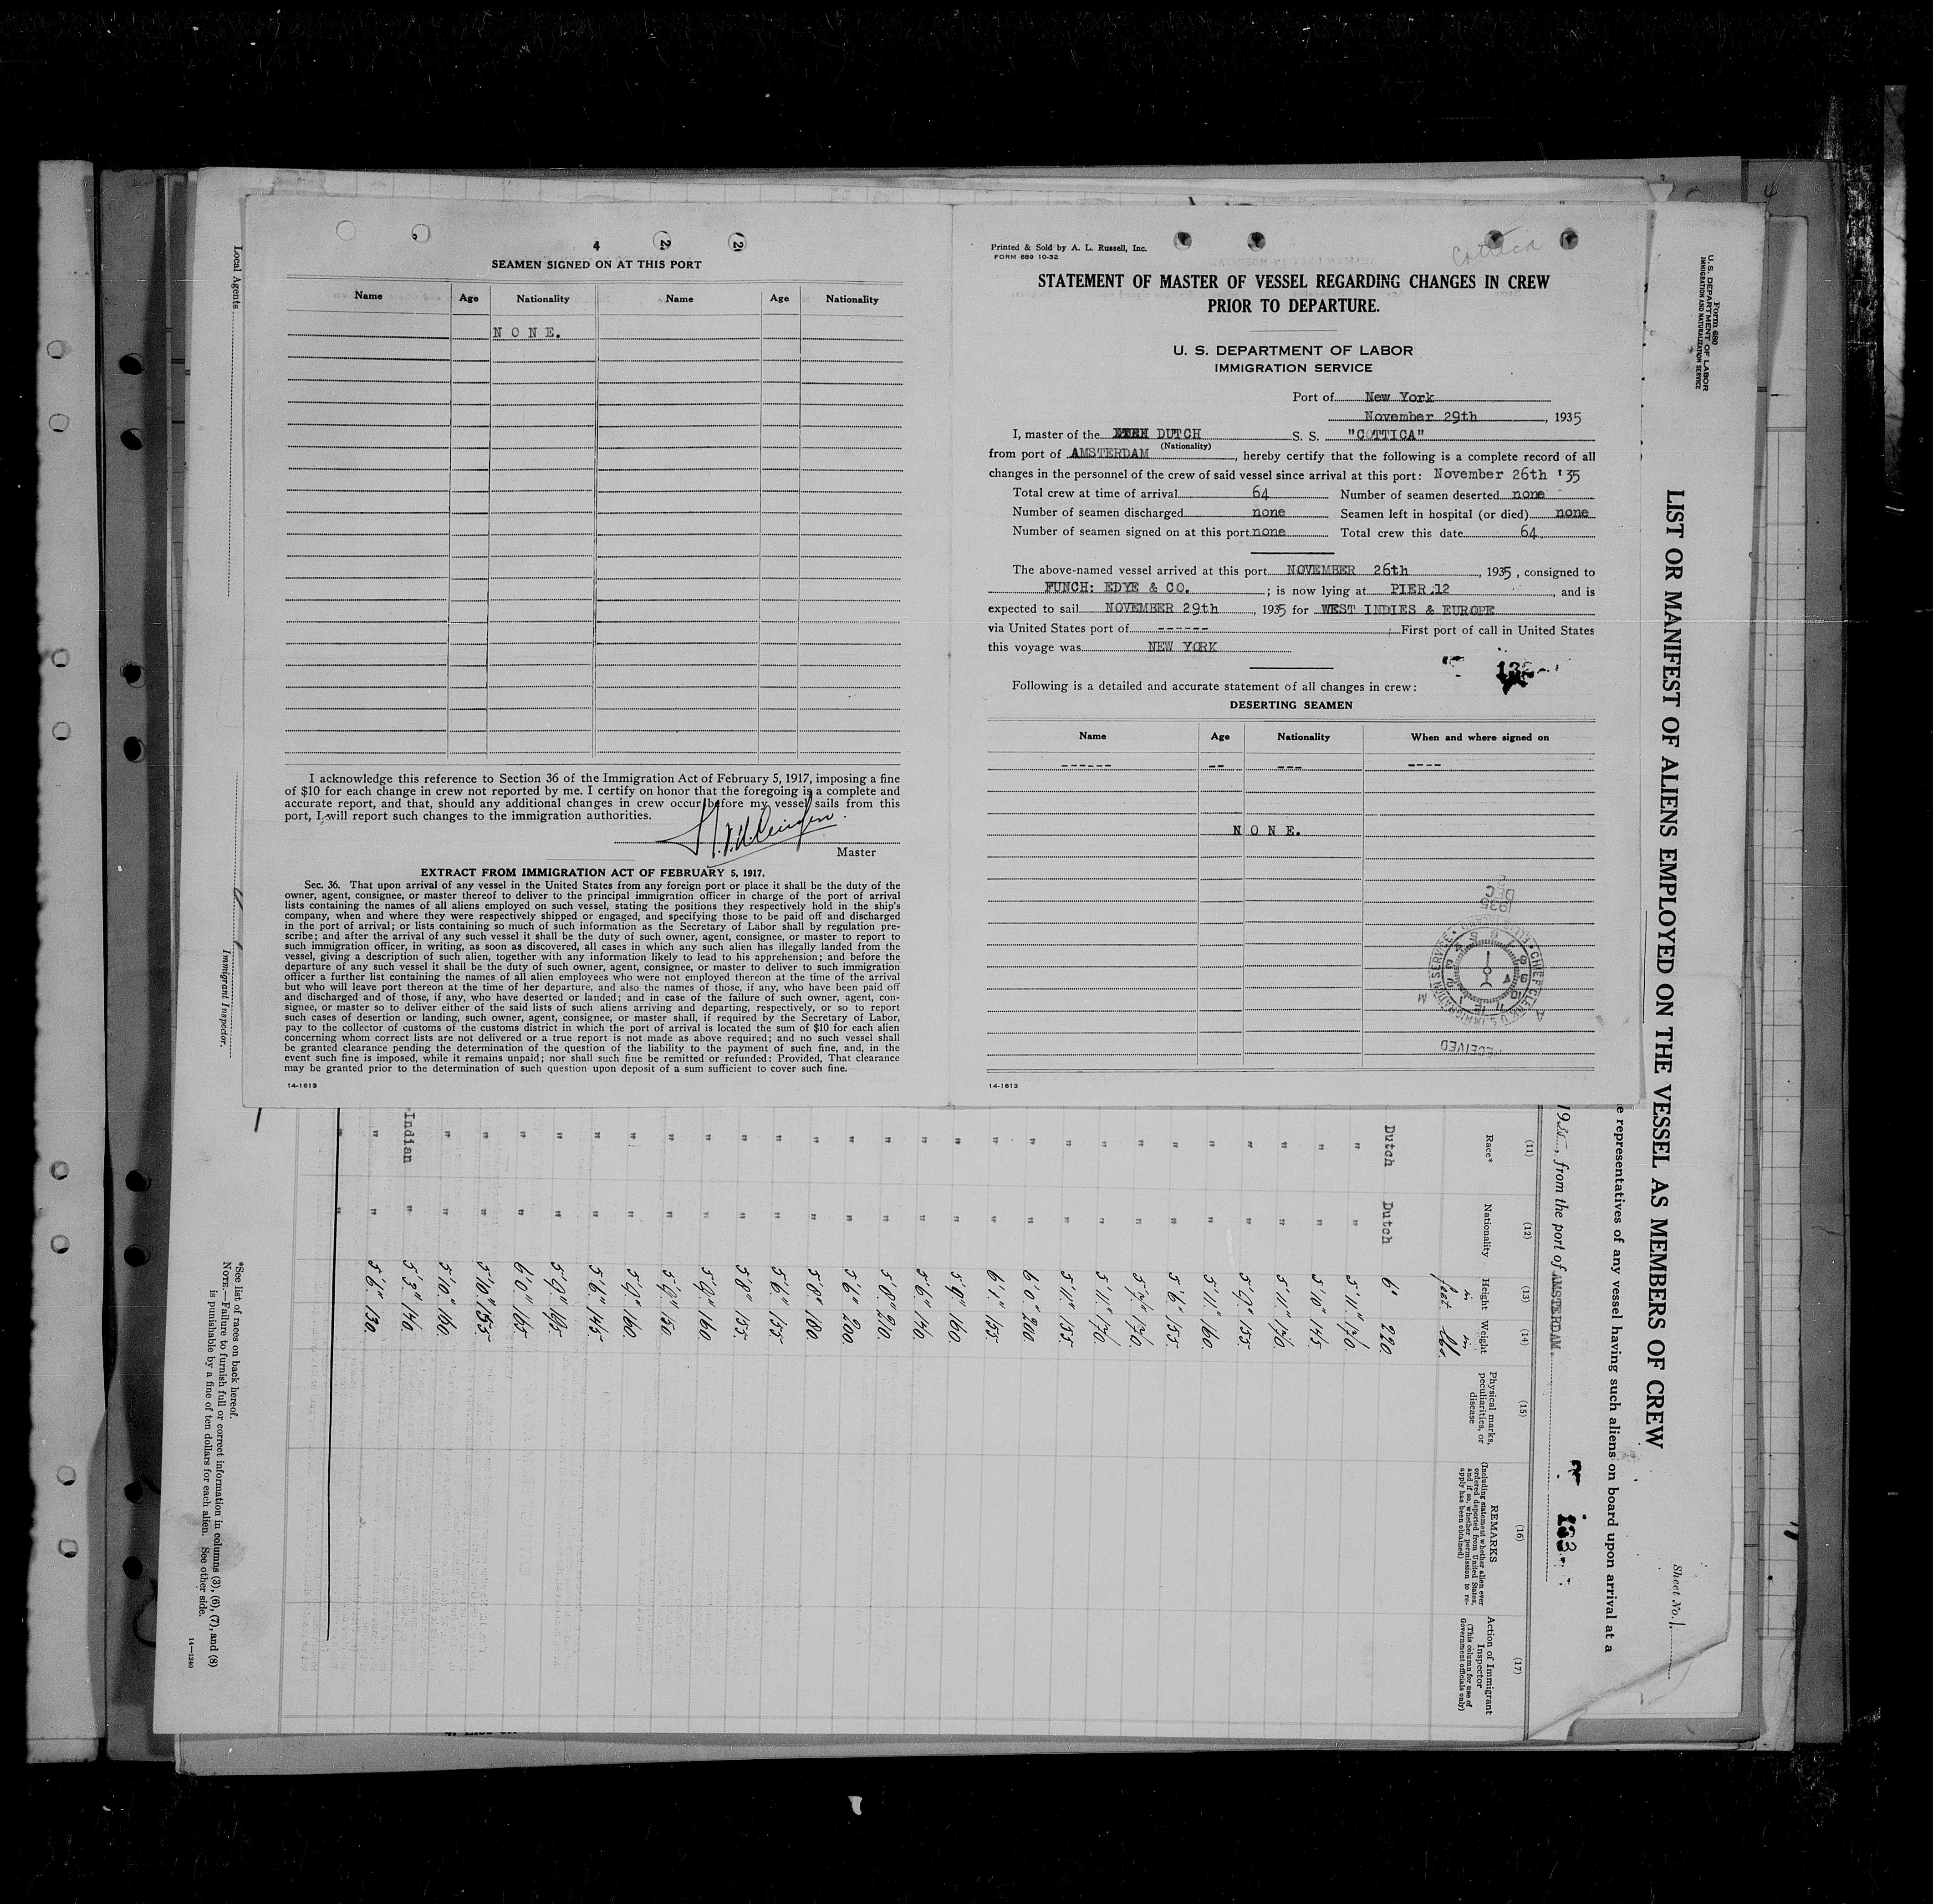 4 2 2
SEAMEN SIGNED ON AT THIS PORT
Name Age Nationality Name Age Nationality
NONE.
I acknowledge this reference to Section 36 of the Immigration Act of February 5, 1917, imposing a fine
of $10 for each change in crew not reported by me. I certify on honor that the foregoing is a complete and
accurate report, and that, should any additional changes in crew occur before my vessel sails from this
port, I will report such changes to the immigration authorities.
Master
EXTRACT FROM IMMIGRATION ACT OF FEBRUARY 5, 1917.
Sec. 36. That upon arrival of any vessel in the United States from any foreign port or place it shall be the duty of the
owner, agent, consignee, or master thereof to deliver to the principal immigration officer in charge of the port of arrival
lists containing the names of all aliens employed on such vessel, stating the positions they respectively hold in the ship's
company, when and where they were respectively shipped or engaged, and specifying those to be paid off and discharged
in the port of arrival; or lists containing so much of such information as the Secretary of Labor shall by regulation pre-
scribe; and after the arrival of any such vessel it shall be the duty of such owner, agent, consignee, or master to report to
such immigration officer, in writing, as soon as discovered, all cases in which any such alien has illegally landed from the
vessel, giving a description of such alien, together with any information likely to lead to his apprehension; and before the
departure of any such vessel it shall be the duty of such owner, agent, consignee, or master to deliver to such immigration
officer a further list containing the names of all alien employees who were not employed thereon at the time of the arrival
but who will leave port thereon at the time of her departure, and also the names of those, if any, who have been paid off
and discharged and of those, if any, who have deserted or landed; and in case of the failure of such owner, agent, con-
signee, or master so to deliver either of the said lists of such aliens arriving and departing, respectively, or so to report
such cases of desertion or landing, such owner, agent, consignee, or master shall, if required by the Secretary of Labor,
pay to the collector of customs of the customs district in which the port of arrival is located the sum of $10 for each alien
concerning whom correct lists are not delivered or a true report is not made as above required; and no such vessel shall
be granted clearance pending the determination of the question of the liability to the payment of such fine, and, in the
event such fine is imposed, while it remains unpaid; nor shall such fine be remitted or refunded: Provided, That clearance
may be granted prior to the determination of such question upon deposit of a sum sufficient to cover such fine.
14-1613
Cottica
Printed & Sold by A. L. Russell, Inc.
FORM 689 10-32
STATEMENT OF MASTER OF VESSEL REGARDING CHANGES IN CREW
PRIOR TO DEPARTURE.
U. S. DEPARTMENT OF LABOR
IMMIGRATION SERVICE
Port of New York
November 29th, 1935
I, master of the DUTCH S. S. "COTTICA"
(Nationality)
from port of AMSTERDAM, hereby certify that the following is a complete record of all
changes in the personnel of the crew of said vessel since arrival at this port: November 26th '35
Total crew at time of arrival 64 Number of seamen deserted none
Number of seamen discharged none Seamen left in hospital (or died) none
Number of seamen signed on at this port none Total crew this date 64.
The above-named vessel arrived at this port NOVEMBER 26th, 1935, consigned to
FUNCH: EDYE & CO. ; is now lying at PIER 12, and is
expected to sail NOVEMBER 29th, 1935 for WEST INDIES & EUROPE
via United States port of ------ First port of call in United States
this voyage was NEW YORK
Following is a detailed and accurate statement of all changes in crew:
DESERTING SEAMEN
Name Age Nationality When and where signed on
------ -- --- ----
NONE.
1935
DEC
2
CHIEF CLERK U.S. IMMIGRATION SERVICE
RECEIVED
14-1613
Form 680
U. S. DEPARTMENT OF LABOR
IMMIGRATION AND NATURALIZATION SERVICE
Sheet No. 1.
LIST OR MANIFEST OF ALIENS EMPLOYED ON THE VESSEL AS MEMBERS OF CREW
e representatives of any vessel having such aliens on board upon arrival at a
1935, from the port of AMSTERDAM.
(11) (12) (13) (14) (15) (16) (17)
Race* Nationality Height in feet Weight in lbs. Physical marks, peculiarities, or disease REMARKS (Including statement whether alien ever ordered deported from United States, and if so, whether permission to re-apply has been obtained) Action of Immigrant Inspector (This column for use of Government officials only)
Dutch Dutch 6' 220.
" " 5'11" 170.
" " 5'10" 145.
" " 5'11" 170.
" " 5'9" 155.
" " 5'11" 160.
" " 5'6" 155.
" " 5'7" 170.
" " 5'11" 170.
" " 5'11" 155.
" " 6'0" 200.
" " 6'1" 155.
" " 5'9" 160.
" " 5'6" 140.
" " 5'8" 210.
" " 5'6" 200.
" " 5'8" 180.
" " 5'6" 155.
" " 5'8" 155.
" " 5'9" 160.
" " 5'9" 150.
" " 5'9" 160.
" " 5'6" 145.
" " 5'9" 165.
" " 6'0" 165.
" " 5'10" 155.
" " 5'10" 160.
-Indian " 5'3" 140.
" " 5'6" 130.
" "
*See list of races on back hereof.
NOTE.—Failure to furnish full or correct information in columns (3), (6), (7), and (8)
is punishable by a fine of ten dollars for each alien. See other side.
14—1240
Local Agents
Immigrant Inspector.